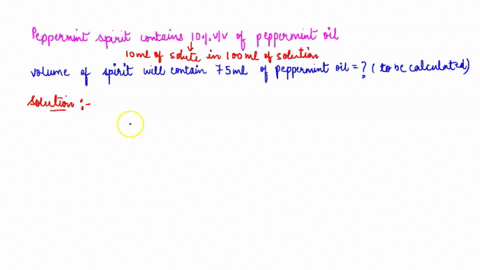 Peppermint spirit contains 10% v/v of peppermint oil
10 ml of solute in 100 ml of solution
volume of spirit will contain 75 ml of peppermint oil = ? (to be calculated)
Solution :-